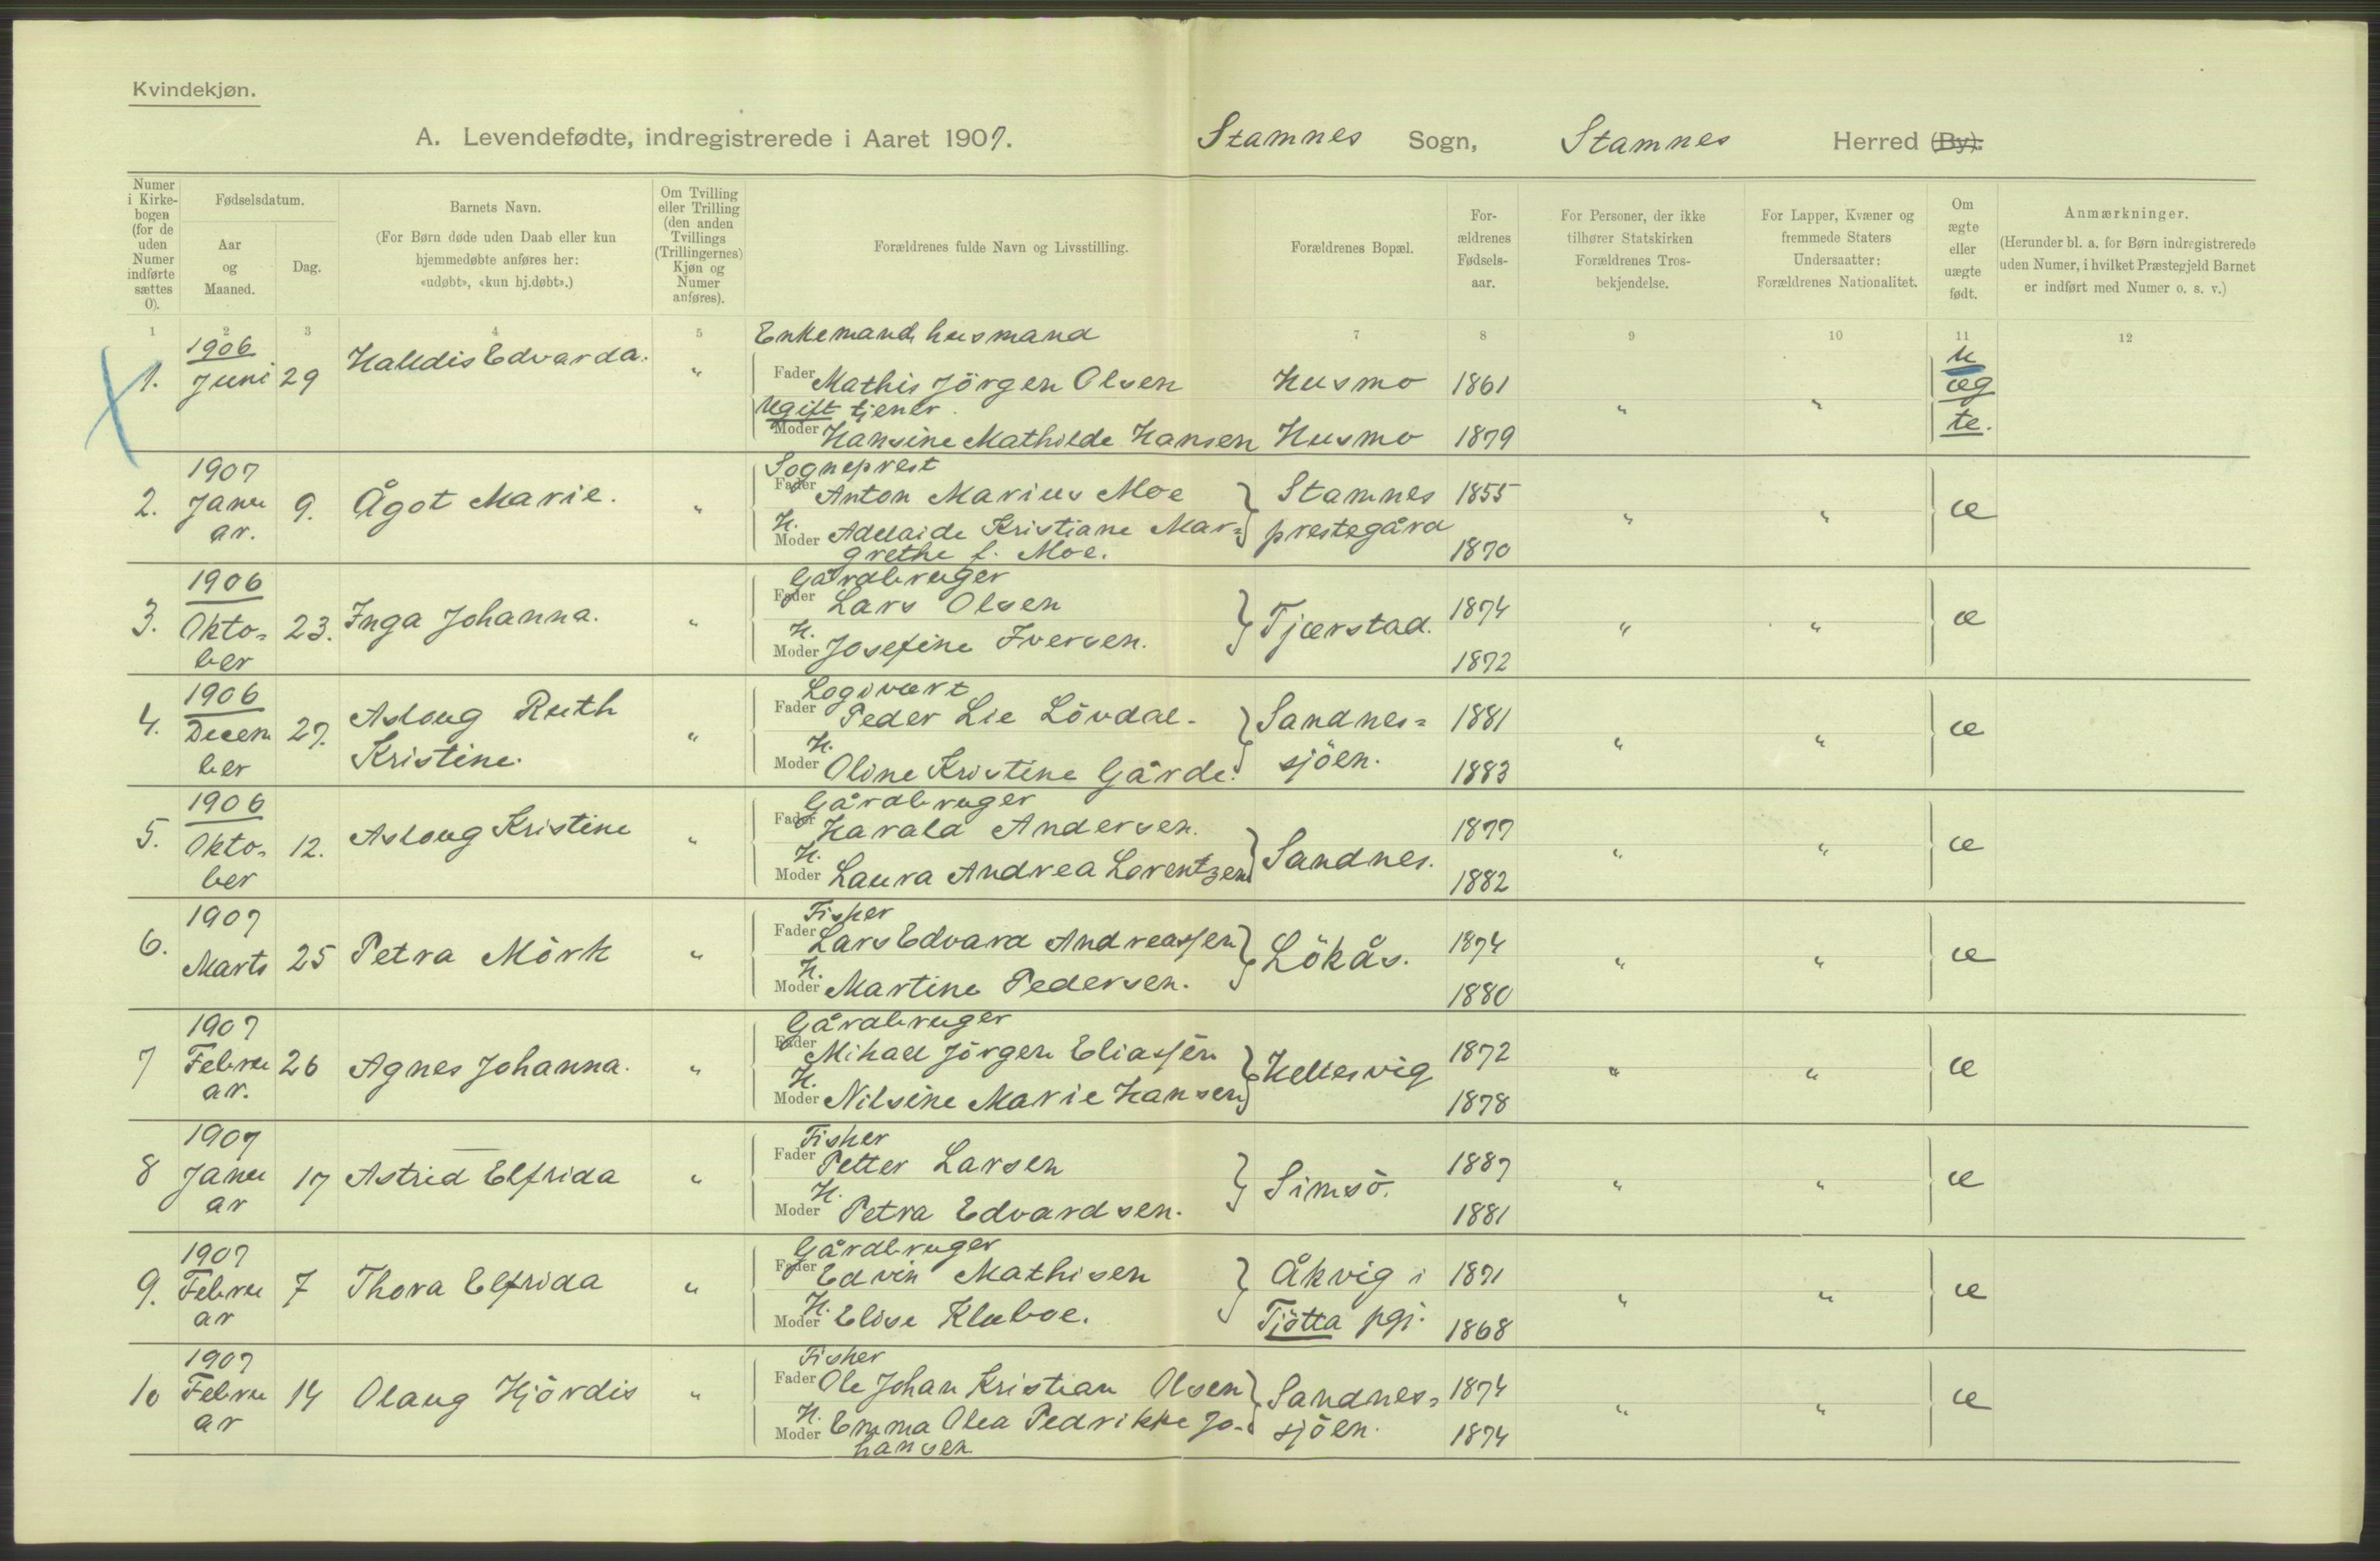 Kvindekjøn.
A. Levendefødte, indregistrerede i Aaret 1907. Stamnes Sogn, Stamnes Herred (By).
Numer i Kirkebogen (for de uden Numer indførte sættes 0).
Fødselsdatum.
Aar og Maaned.
Dag.
Barnets Navn.
(For Børn døde uden Daab eller kun hjemmedøbte anføres her: «udøbt», «kun hj.døbt».)
Om Tvilling eller Trilling (den anden Tvillings (Trillingernes) Kjøn og Numer anføres).
Forældrenes fulde Navn og Livsstilling.
Forældrenes Bopæl.
Forældrenes Fødselsaar.
For Personer, der ikke tilhører Statskirken Forældrenes Trosbekjendelse.
For Lapper, Kvæner og fremmede Staters Undersaatter: Forældrenes Nationalitet.
Om ægte eller uægte født.
Anmærkninger.
(Herunder bl. a. for Børn indregistrerede uden Numer, i hvilket Præstegjeld Barnet er indført med Numer o. s. v.)
1 2 3 4 5 7 8 9 10 11 12
1. 1906 Juni 29 Halldis Edvarda. "
Enkemand, husmand
Fader Mathis Jörgen Olsen Husmo 1861
Ugift tjener.
Moder Hansine Mathilde Hansen Husmo 1879 " " uægte.
2. 1907 Januar. 9. Ågot Marie. "
Sogneprest
Fader Anton Marius Moe Stamnes 1855
H. Moder Adelaide Kristiane Mar= prestegård
grethe f. Moe. 1870 " " æ
3. 1906 Okto=ber 23. Inga Johanna. "
Gårdbruger
Fader Lars Olsen Tjærstad. 1874
H. Moder Josefine Iversen. 1872 " " æ
4. 1906 December 27. Aslaug Ruth Kristine. "
Logivært
Fader Peder Lie Lövdal. Sandnes= 1881
H. Moder Oline Kristine Gårde. sjöen. 1883 " " æ
5. 1906 Okto=ber 12. Aslaug Kristine "
Gårdbruger
Fader Harald Andersen. Sandnes. 1877
H. Moder Laura Andrea Lorentzen 1882 " " æ
6. 1907 Marts 25 Petra Mörk "
Fisker
Fader Lars Edvard Andreassen Lökås. 1874
H. Moder Martine Pedersen. 1880 " " æ
7 1907 Februar. 26 Agnes Johanna. "
Gårdbruger
Fader Mikael Jörgen Eliassen Hellesvig 1872
H. Moder Nilsine Marie Hansen 1878 " " æ
8 1907 Januar 17 Astrid Elfrida "
Fisker
Fader Petter Larsen Simsö. 1887
H. Moder Petra Edvardsen. 1881 " " æ
9. 1907 Februar 7 Thora Elfrida "
Gårdbruger
Fader Edvin Mathisen Åkvig i 1871
H. Moder Elise Kluboe. Tjötta pgj. 1868 " " æ
10 1907 Februar 14 Olaug Hjördis "
Fisker
Fader Ole Johan Kristian Olsen Sandnes= 1874
H. Moder Emma Olea Pedrikke Jo- sjöen. 1874 " " æ
hansen